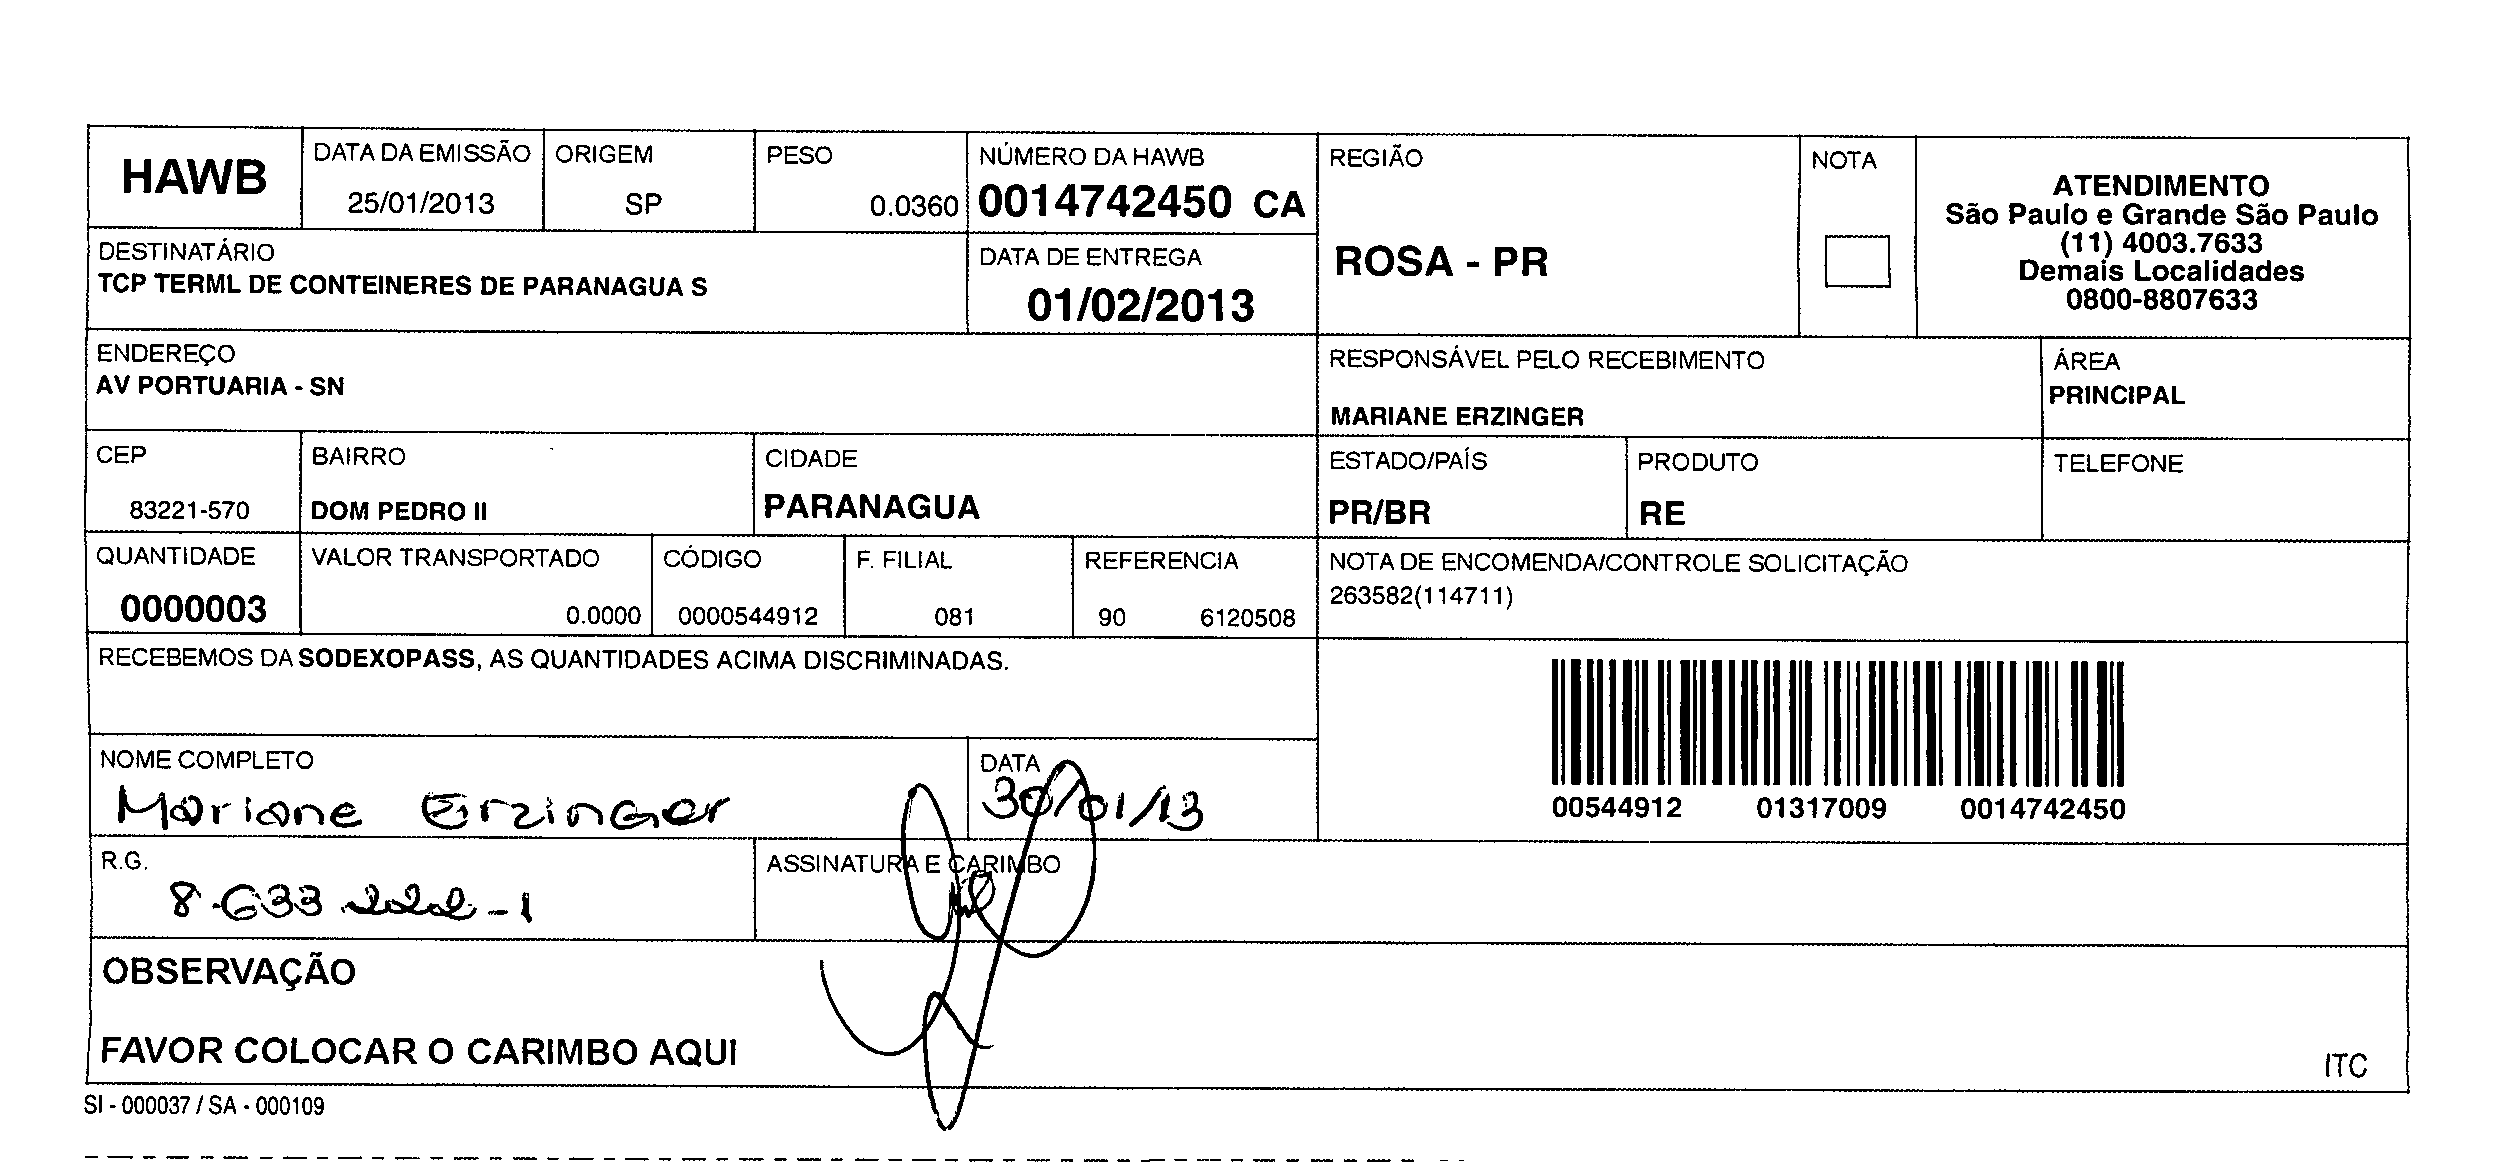 HAWB
DATA DA EMISSÃO
25/01/2013
ORIGEM
SP
PESO
0.0360
NÚMERO DA HAWB
0014742450 CA
REGIÃO
ROSA - PR
NOTA
ATENDIMENTO
São Paulo e Grande São Paulo
(11) 4003.7633
Demais Localidades
0800-8807633
DESTINATÁRIO
TCP TERML DE CONTEINERES DE PARANAGUA S
DATA DE ENTREGA
01/02/2013
ENDEREÇO
AV PORTUARIA - SN
RESPONSÁVEL PELO RECEBIMENTO
MARIANE ERZINGER
ÁREA
PRINCIPAL
CEP
83221-570
BAIRRO
DOM PEDRO II
CIDADE
PARANAGUA
ESTADO/PAÍS
PR/BR
PRODUTO
RE
TELEFONE
QUANTIDADE
0000003
VALOR TRANSPORTADO
0.0000
CÓDIGO
0000544912
F. FILIAL
081
REFERENCIA
90 6120508
NOTA DE ENCOMENDA/CONTROLE SOLICITAÇÃO
263582(114711)
RECEBEMOS DA SODEXOPASS, AS QUANTIDADES ACIMA DISCRIMINADAS.
00544912 01317009 0014742450
NOME COMPLETO
Mariane Erzinger
DATA
30/01/13
R.G.
8.633 222-1
ASSINATURA E CARIMBO
OBSERVAÇÃO
FAVOR COLOCAR O CARIMBO AQUI
ITC
SI - 000037 / SA - 000109